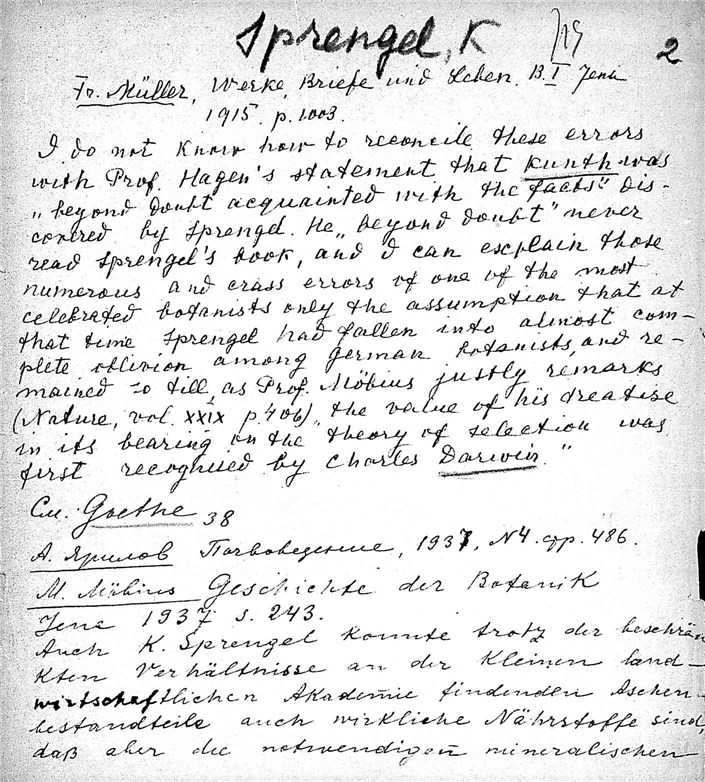 Sprengel, K
2
Fr. Müller, Werke, Briefe und Leben. B. I Jena
1915. p. 1003.
I do not know how to reconcile these errors
with Prof. Hagen's statement that Kunth was
„beyond doubt acquainted with the facts" dis-
covered by Sprengel. He „beyond doubt" never
read Sprengel's book, and I can explain those
numerous and crass errors of one of the most
celebrated botanists only the assumption that at
that time Sprengel had fallen into almost com-
plete oblivion among German botanists, and re-
mained so till, as Prof. Möbius justly remarks
(Nature, vol. XXIX p. 406) „the value of his treatise
in its bearing on the theory of selection was
first recognised by Charles Darwin."
См. Goethe 38
А. Ярилов Почвоведение, 1937, N4. стр. 486.
M. Möbius Geschichte der Botanik
Jena 1937 s. 243.
Auch K. Sprengel konnte trotz der beschrän
kten Verhältnisse an der Kleinen land-
wirtschaftlichen Akademie findenden Aschen-
bestandteile auch wirkliche Nährstoffe sind,
daß aber die notwendigen mineralischen